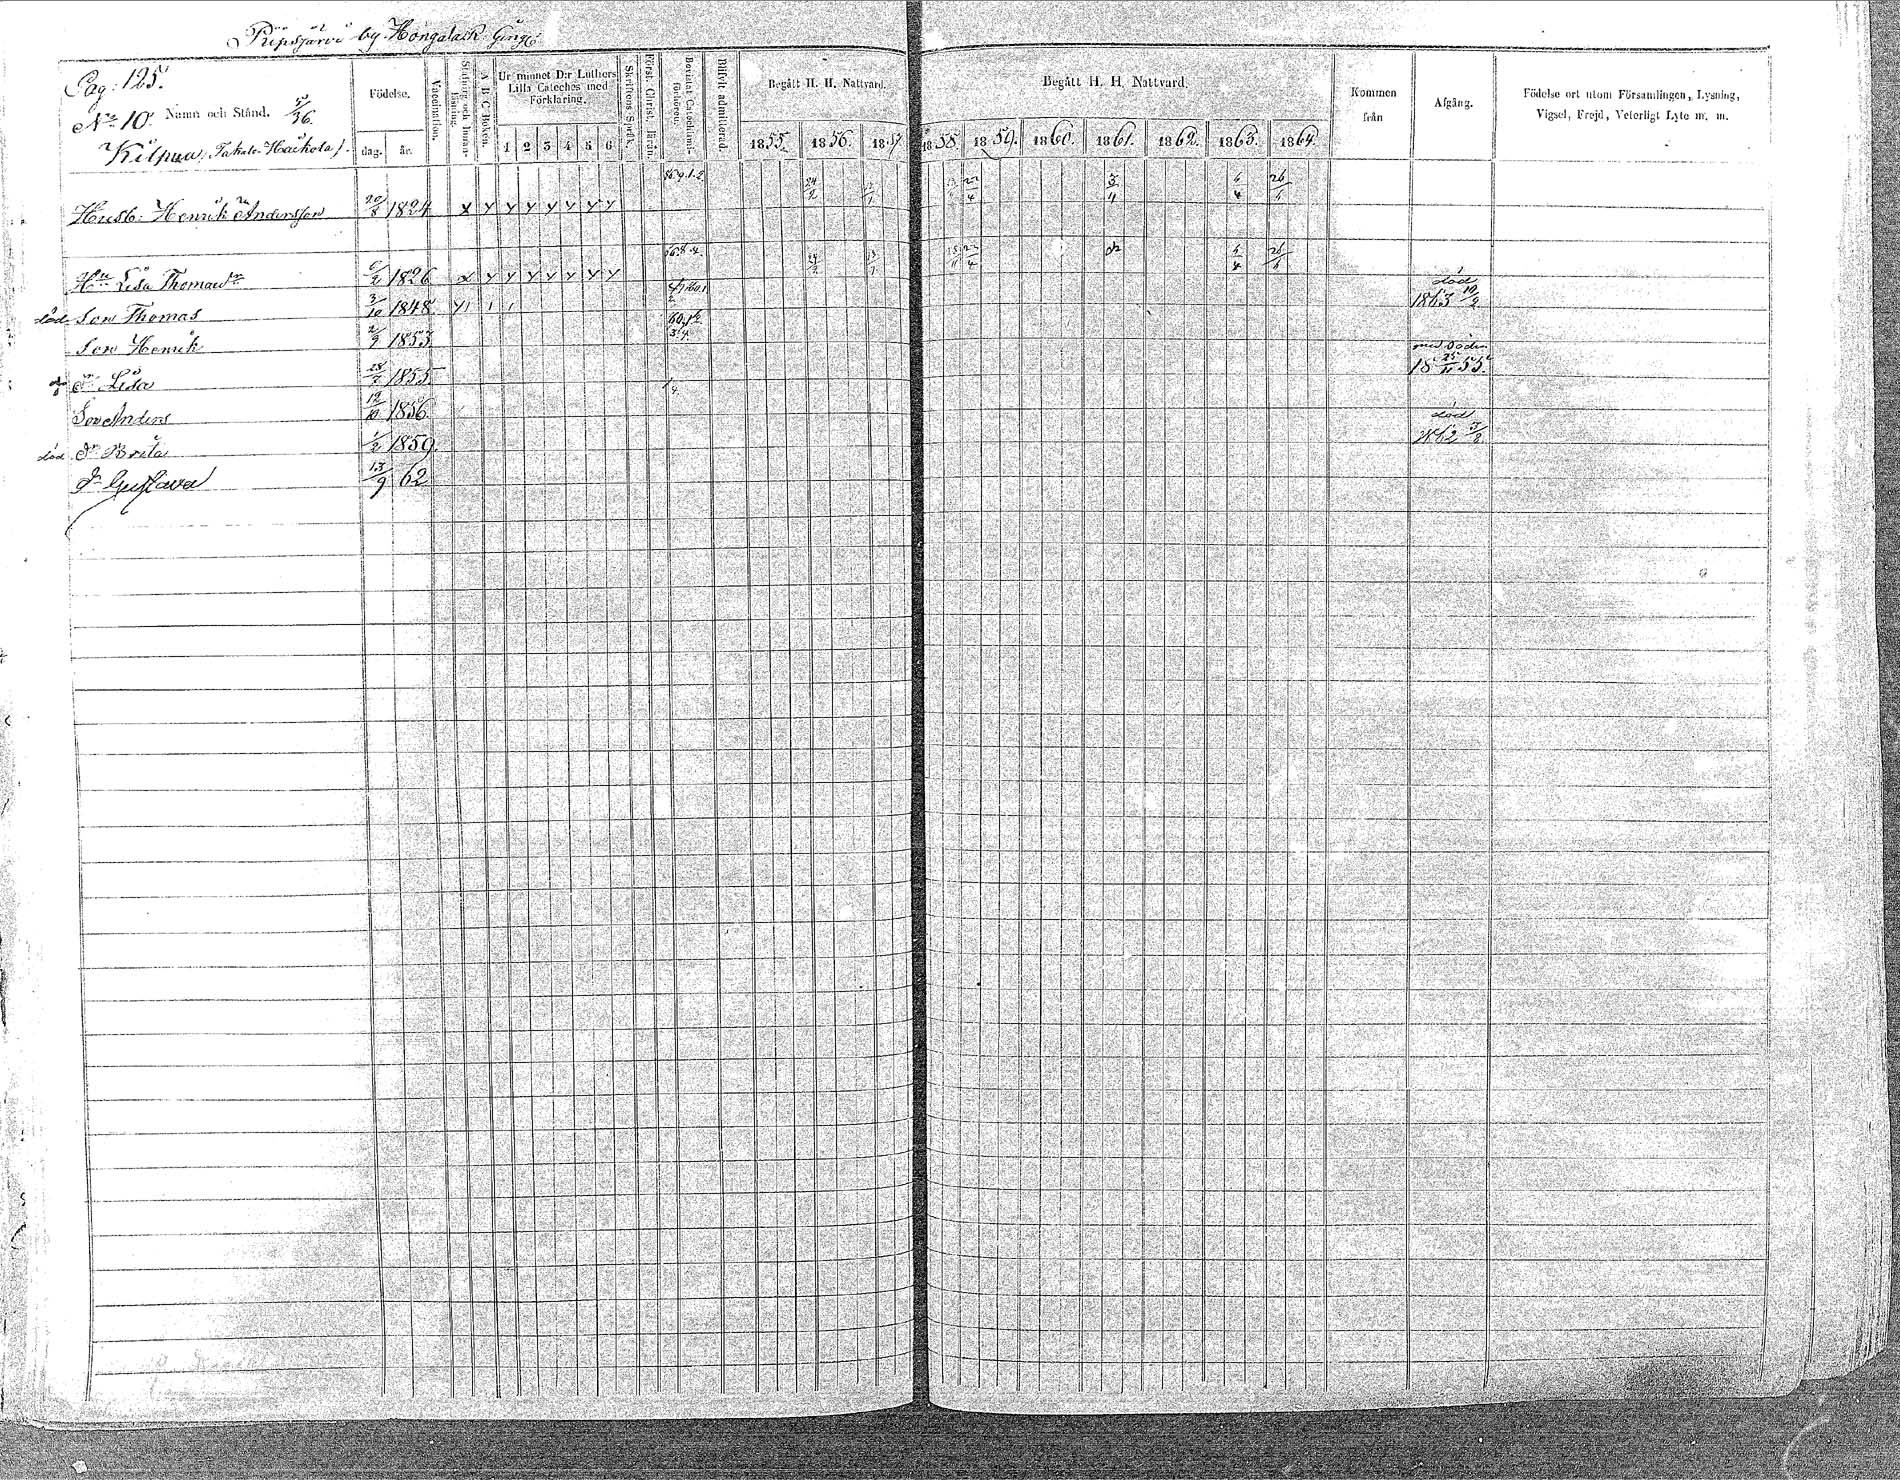 by Hongalack Gång
Pag: 125.
No 10. Namn och Stånd. 5/36
Kilpua, Takalo Haikola
Födelse.
dag. år.
Vaccination.
Stafning och Innan-läsning.
A B C Boken.
Ur minnet D:r Luthers Lilla Cateches med Förklaring.
1 2 3 4 5 6
Skriftens Språk.
Först. Christ. läran.
Bevistat Catechismi-förhören.
Blifvit admitterad.
Begått H. H. Nattvard.
1855. 1856. 1857.
Begått H. H. Nattvard.
1858. 1859. 1860. 1861. 1862. 1863. 1864.
Kommen från
Afgång.
Födelse ort utom Församlingen, Lysning,
Vigsel, Frejd, Veterligt Lyte m. m.
Husb. Henrik Andersson 20/8 1824 X Y Y Y Y Y Y Y 24/2 3/4 6/4 26/6
Hu Lisa Thomasdr 6/2 1826 Y Y Y Y Y Y Y 24/2 6/4 26/6
död Son Thomas 3/10 1848 död 1863 19/2
Son Henrik 2/9 1853
Dr Lisa 28/2 1855 med döden 18 25/11 55.
Son Anders 12/10 1856
död Dr Brita 1/2 1859. död 1862 5/8
Dr Gustava 13/9 62